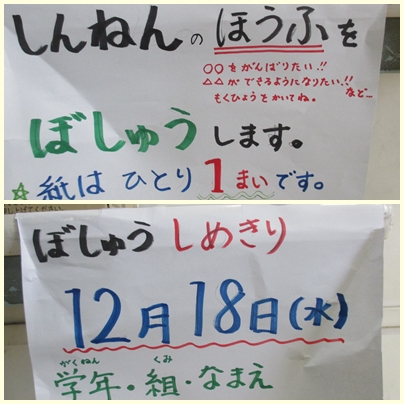 しんねんのほうふを
○○をがんばりたい!!
△△ができるようになりたい!!
など…
もくひょうをかいてね。
ぼしゅうします。
☆紙はひとり1まいです。
ぼしゅうしめきり
12月18日(水)
がくねん くみ
学年・組・なまえ